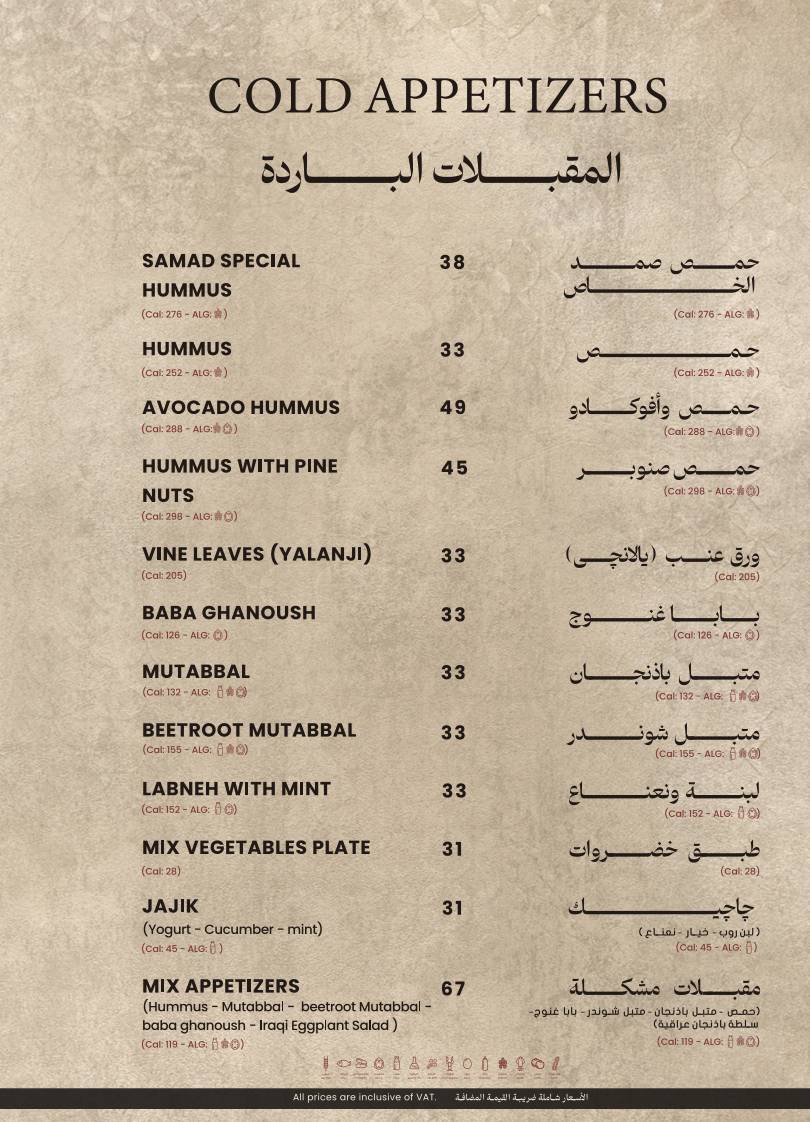 COLD APPETIZERS
المقبلات الباردة
SAMAD SPECIAL HUMMUS 38 حمص صمد الخاص
(Cal: 276 - ALG: ) (Cal: 276 - ALG: )
HUMMUS 33 حمص
(Cal: 252 - ALG: ) (Cal: 252 - ALG: )
AVOCADO HUMMUS 49 حمص وأفوكادو
(Cal: 288 - ALG: ) (Cal: 288 - ALG: )
HUMMUS WITH PINE NUTS 45 حمص صنوبر
(Cal: 298 - ALG: ) (Cal: 298 - ALG: )
VINE LEAVES (YALANJI) 33 ورق عنب (يالانچي)
(Cal: 205) (Cal: 205)
BABA GHANOUSH 33 بابا غنوج
(Cal: 126 - ALG: ) (Cal: 126 - ALG: )
MUTABBAL 33 متبل باذنجان
(Cal: 132 - ALG: ) (Cal: 132 - ALG: )
BEETROOT MUTABBAL 33 متبل شوندر
(Cal: 155 - ALG: ) (Cal: 155 - ALG: )
LABNEH WITH MINT 33 لبنة ونعناع
(Cal: 152 - ALG: ) (Cal: 152 - ALG: )
MIX VEGETABLES PLATE 31 طبق خضروات
(Cal: 28) (Cal: 28)
JAJIK 31 چاچيك
(Yogurt - Cucumber - mint) (لبن روب - خيار - نعناع)
(Cal: 45 - ALG: ) (Cal: 45 - ALG: )
MIX APPETIZERS 67 مقبلات مشكلة
(Hummus - Mutabbal - beetroot Mutabbal - (حمص - متبل باذنجان - متبل شوندر - بابا غنوج-
baba ghanoush - Iraqi Eggplant Salad ) سلطة باذنجان عراقية)
(Cal: 119 - ALG: ) (Cal: 119 - ALG: )
All prices are inclusive of VAT. الأسعار شاملة ضريبة القيمة المضافة